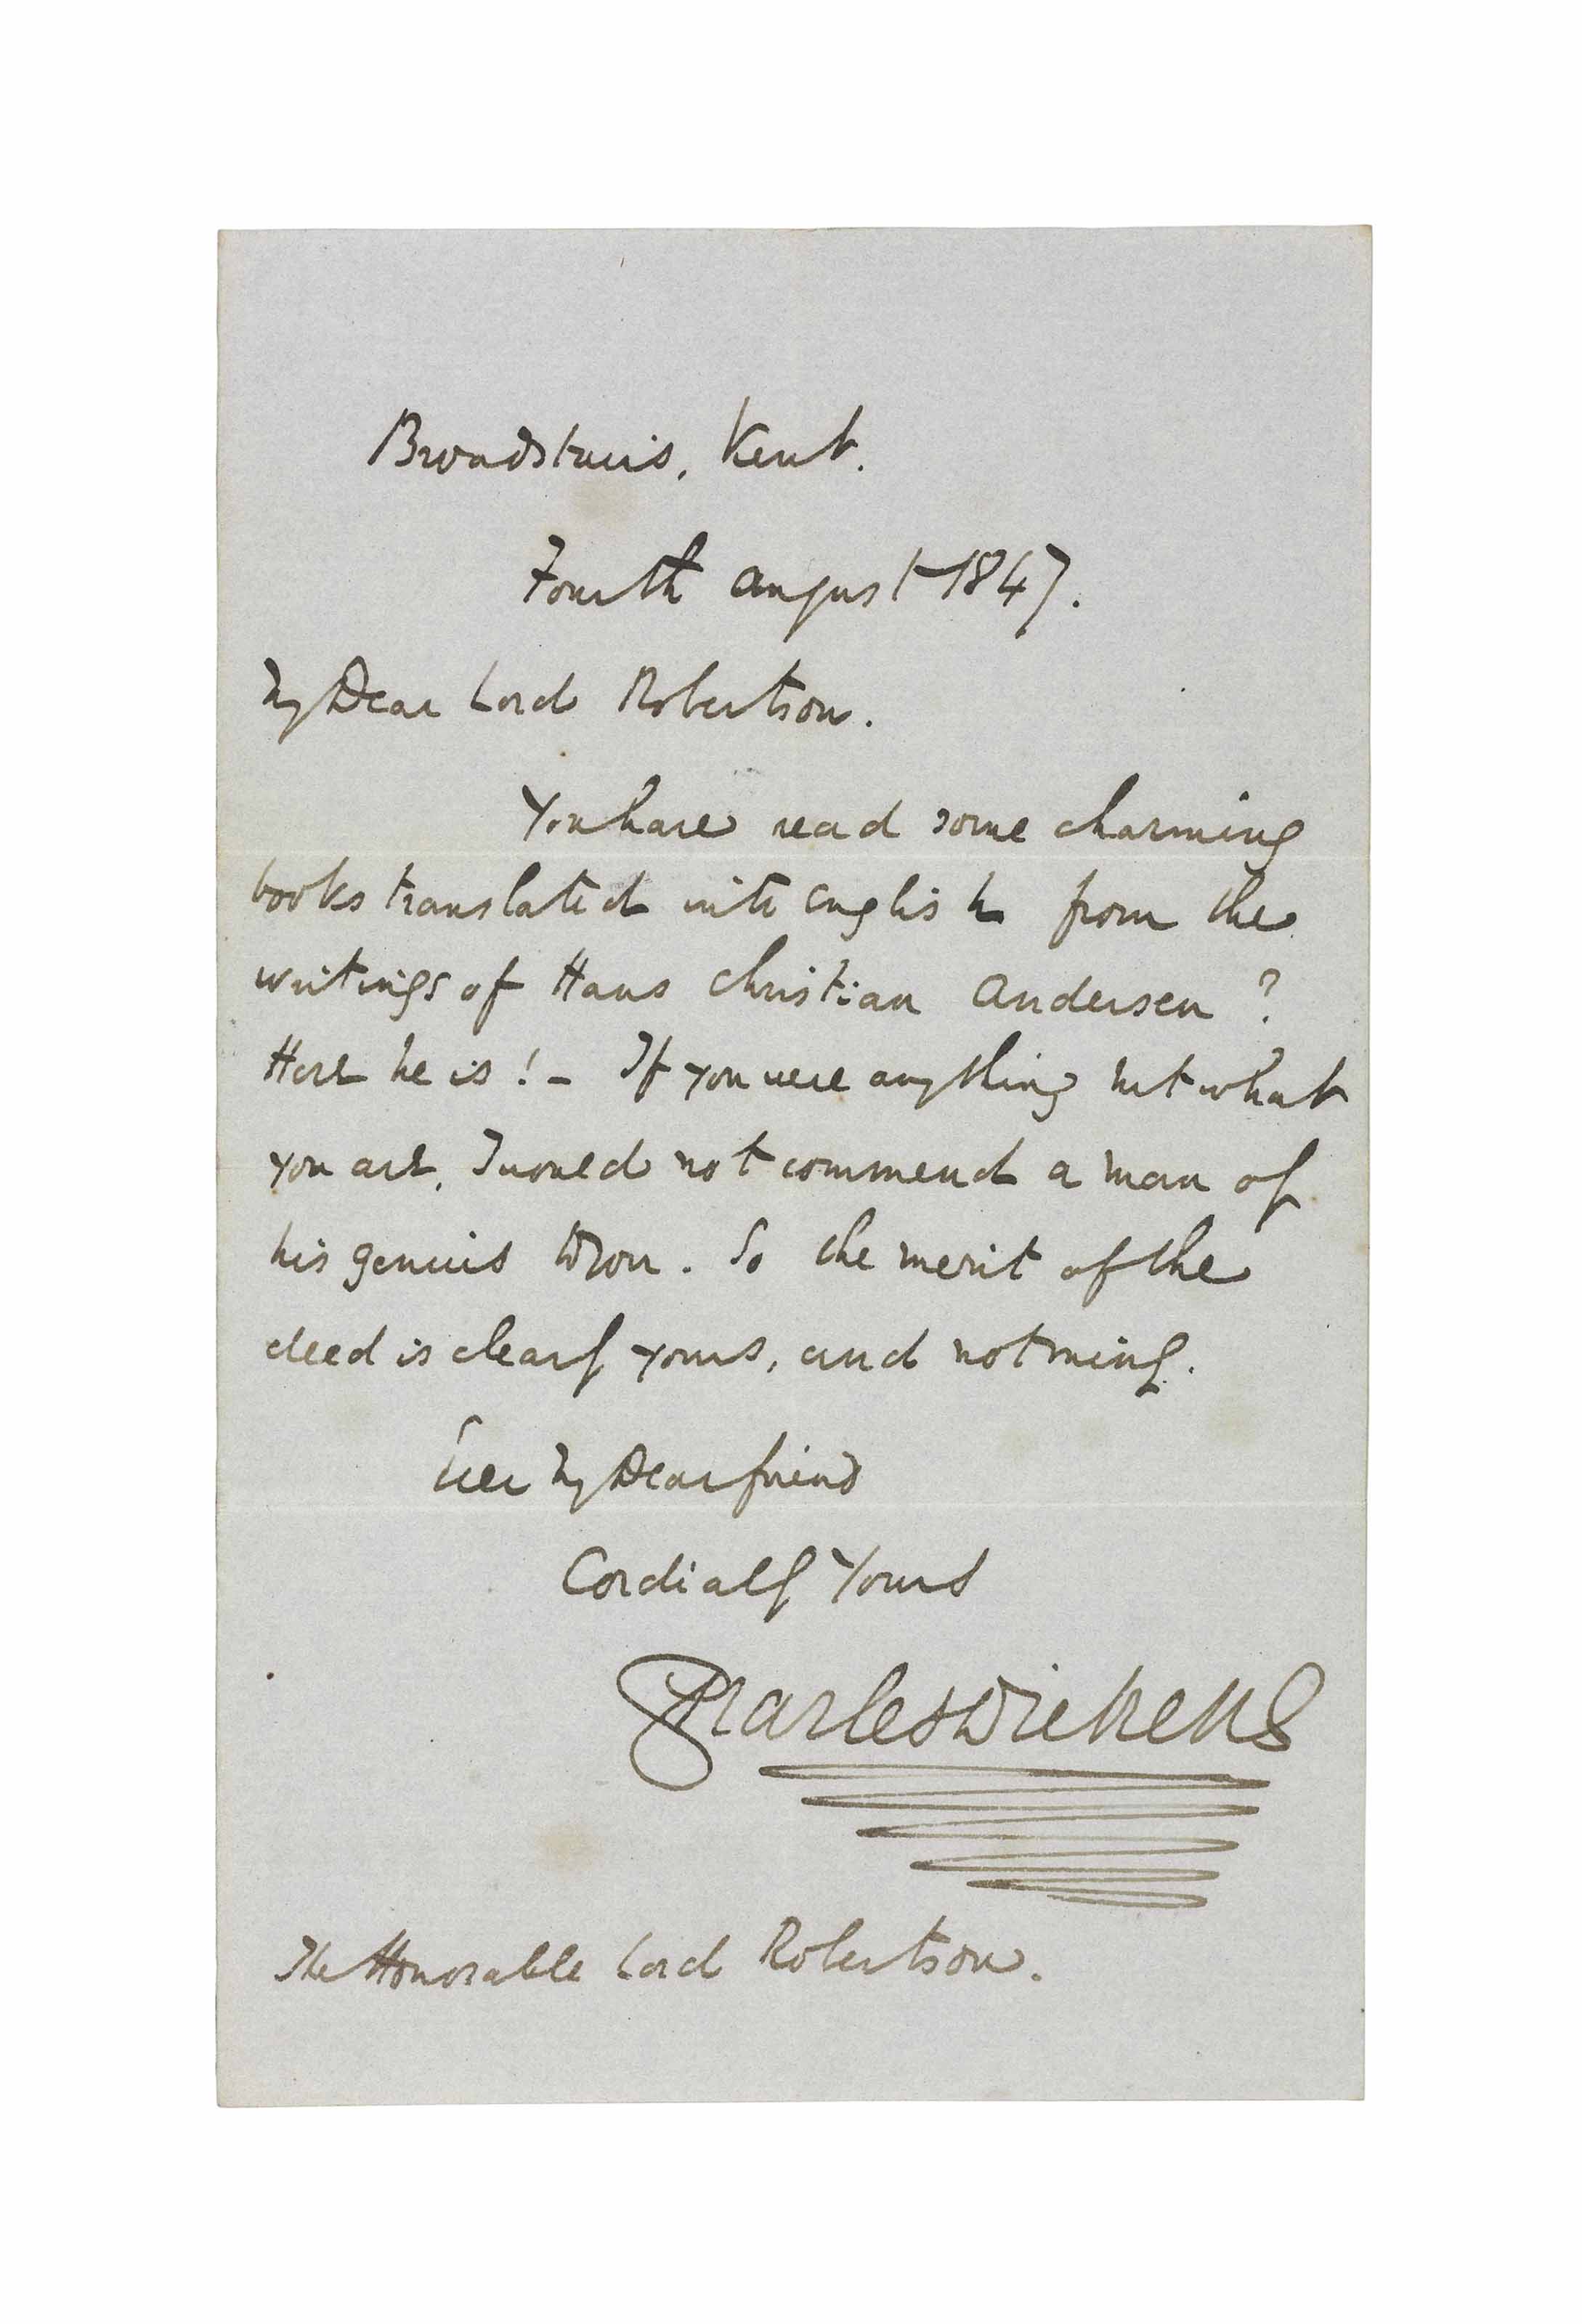 Broadstairs, Kent.
Fourth August 1847.
My Dear Lord Robertson.
You have read some charming
books translated into English from the
writings of Hans Christian Andersen?
Here he is! – If you were anything but what
you are, I would not commend a man of
his genius to you. So the merit of the
deed is clearly yours, and not mine.
Ever My Dear friend
Cordially Yours
Charles Dickens
The Honorable Lord Robertson.